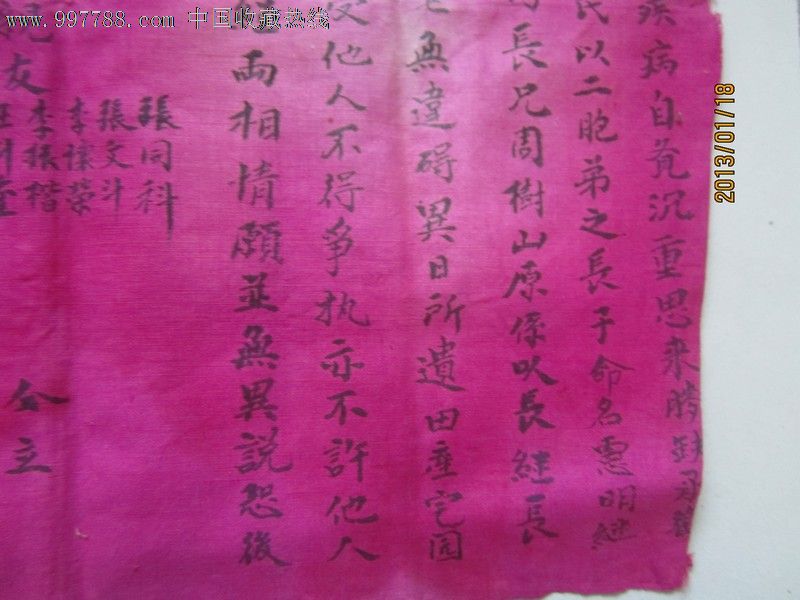 www.997788.com 中国收藏热线
疾病自觉沉重思来
氏以二胞弟之長子命名憲明継
長兄周樹山原係以長継長
無違碍異日所遺田產宅園
受他人不得爭执亦不許他人
兩相情願並無異說恐後
友
張同科
張文斗
李懷榮
李振楷
仝立
2013/01/18